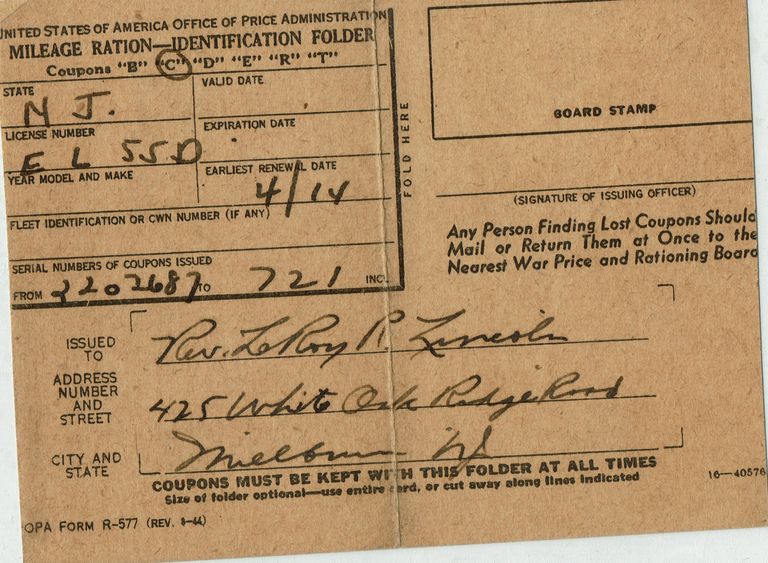 UNITED STATES OF AMERICA OFFICE OF PRICE ADMINISTRATION
MILEAGE RATION—IDENTIFICATION FOLDER
Coupons "B" "C" "D" "E" "R" "T"
STATE
N J.
VALID DATE
LICENSE NUMBER
E L 55D
EXPIRATION DATE
YEAR MODEL AND MAKE
EARLIEST RENEWAL DATE
4/14
FLEET IDENTIFICATION OR CWN NUMBER (IF ANY)
SERIAL NUMBERS OF COUPONS ISSUED
FROM 2202687 TO 721 INCL.
FOLD HERE
BOARD STAMP
(SIGNATURE OF ISSUING OFFICER)
Any Person Finding Lost Coupons Should
Mail or Return Them at Once to the
Nearest War Price and Rationing Board
ISSUED TO Rev. LeRoy R. Lincoln
ADDRESS NUMBER AND STREET 425 White Oak Ridge Road
CITY AND STATE Millburn NJ
COUPONS MUST BE KEPT WITH THIS FOLDER AT ALL TIMES
Size of folder optional—use entire card, or cut away along lines indicated
16—40576
OPA FORM R-577 (REV. 8-44)